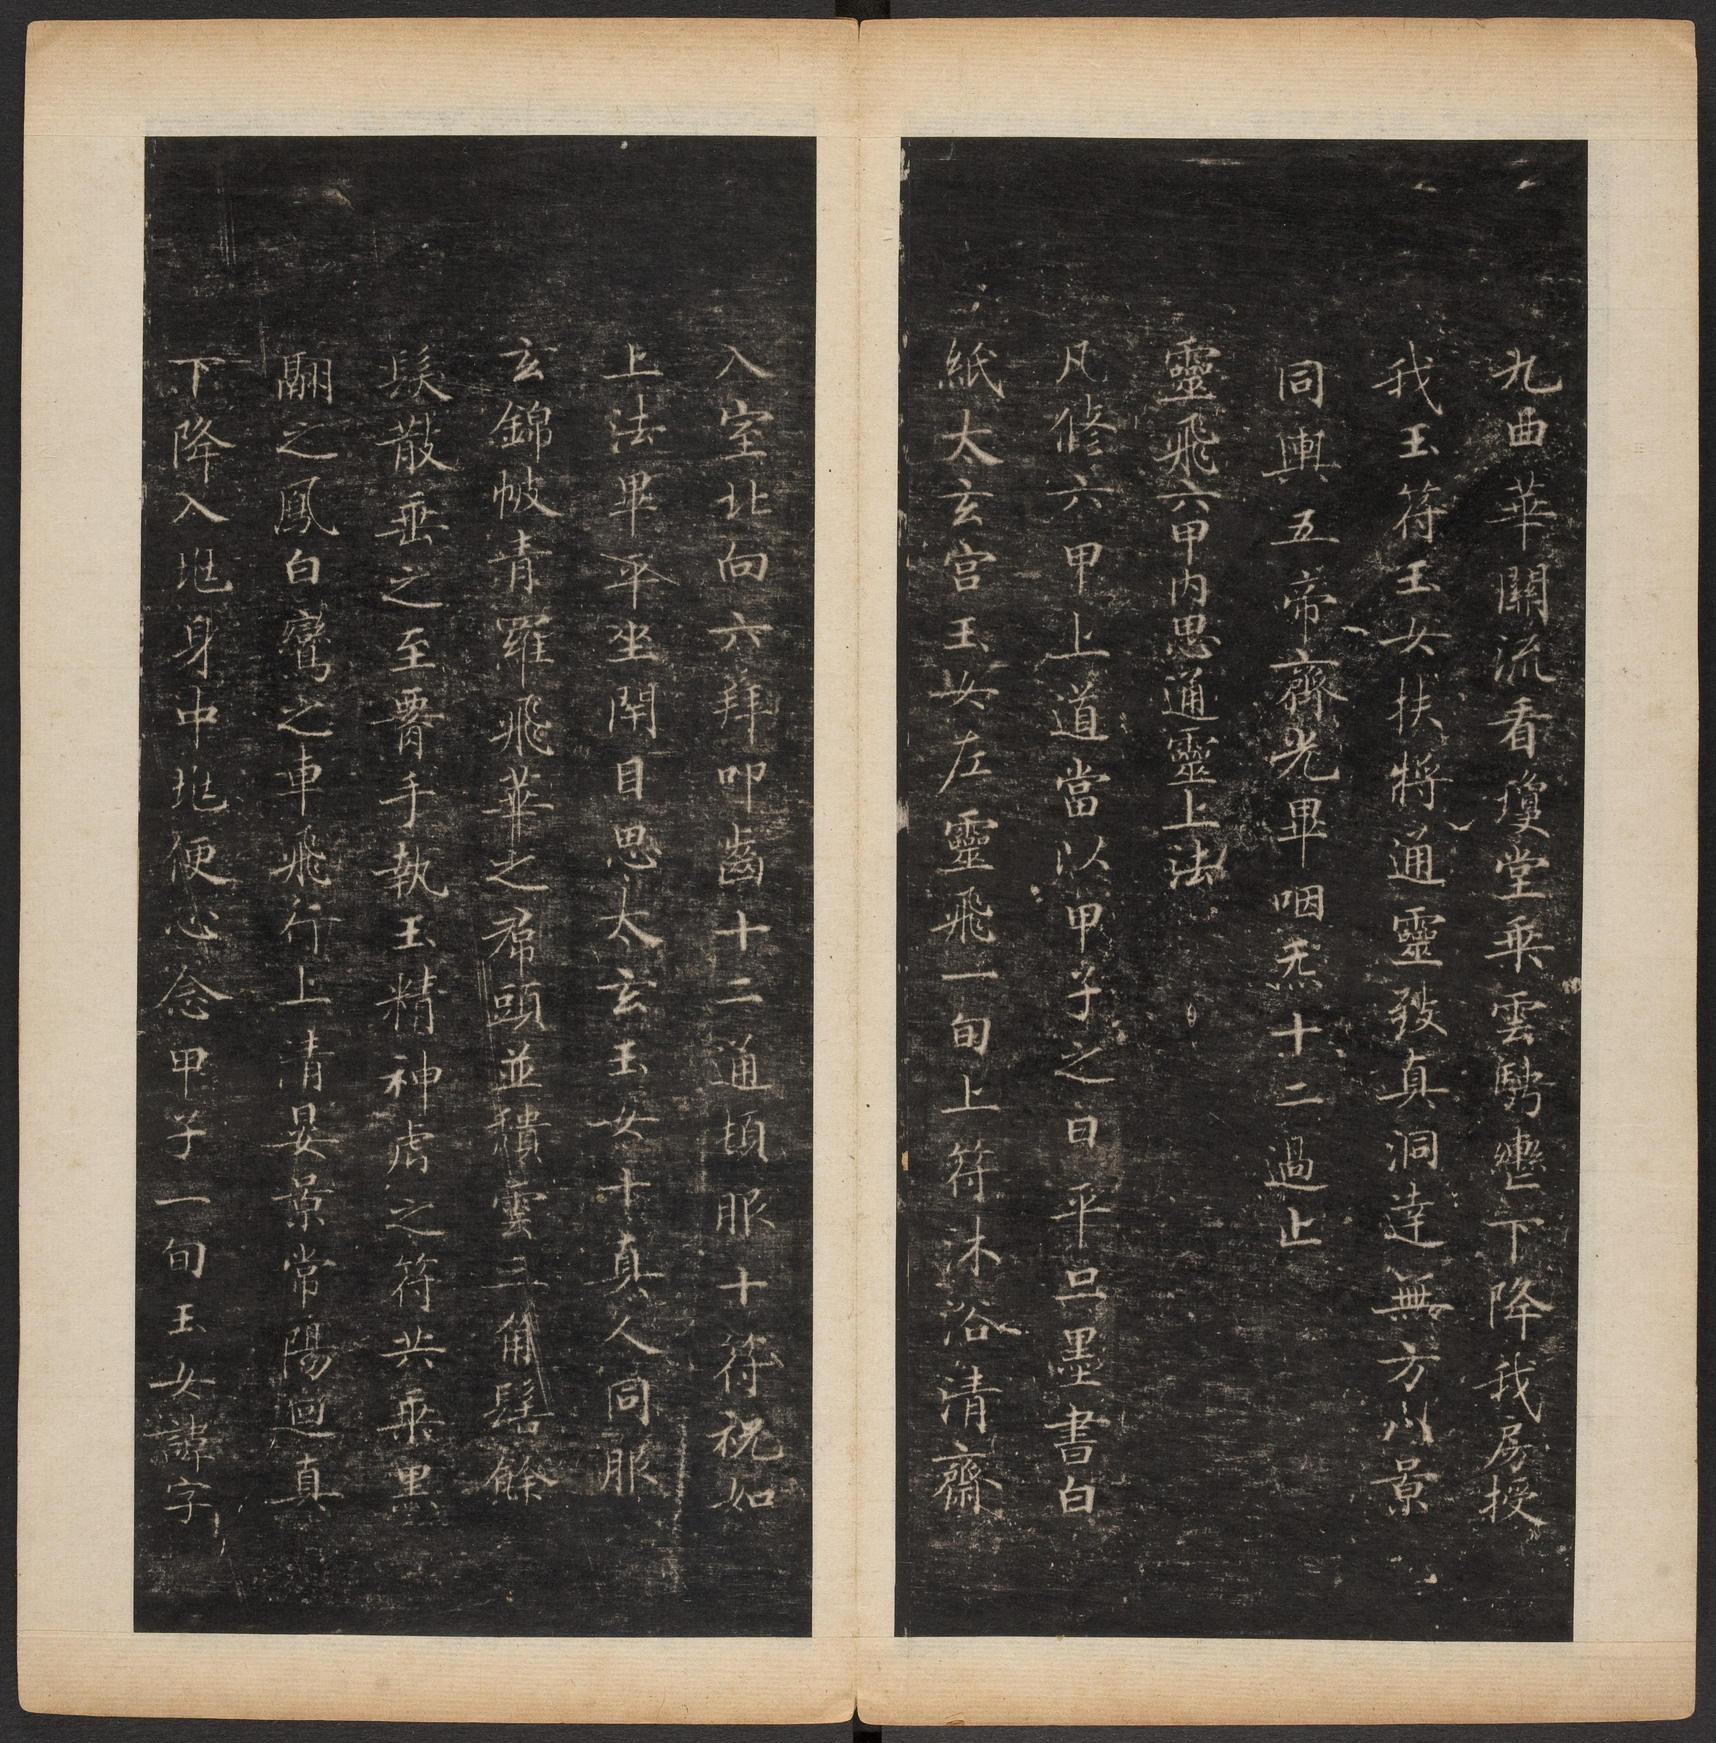 九曲華關流看瓊堂乗雲騁轡下降我房授
我玉符玉女扶將通靈致真洞達無方八景
同輿五帝齊光畢咽炁十二過止
靈飛六甲内思通靈上法
凡修六甲上道當以甲子之日平旦墨書白
紙太玄宫玉女左靈飛一旬上符沐浴清齋
入室北向六拜叩齒十二通頓服十符祝如
上法畢平坐閇目思太玄玉女十真人同服
玄錦帔青羅飛華之帬頭並穨雲三角髻餘
髮散垂之至䙅手執玉精神虎之符共乗黒
翮之鳳白鸞之車飛行上清晏景常陽迴真
下降入𡉏身中𡉏便心念甲子一旬玉女諱字